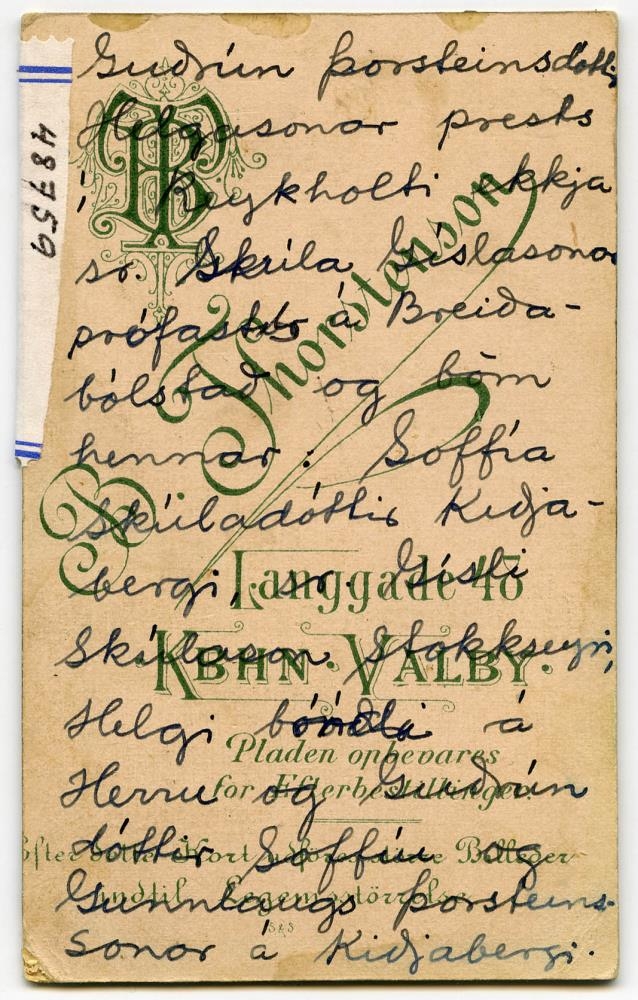 Guðrún Þorsteinsdóttir
Helgasonar prests
í Reykholti ekkja
sr. Skúla Gíslasonar
prófasts á Breiða-
bólstað og börn
hennar: Soffía
Skúladóttir Kiðja-
bergi, sr. Gísli
Skúlason Stokkseyri,
Helgi bóndi á
Herru og Guðrún
dóttir Soffíu og
Gunnlaugs Þorsteins-
sonar á Kiðjabergi.
48759
B. Thorstenson
Langgade 48
KBHN. VALBY.
Pladen opbevares
for Efterbestillinger.
Efter dette Kort udføres Billeder
indtil Legemsstörrelse